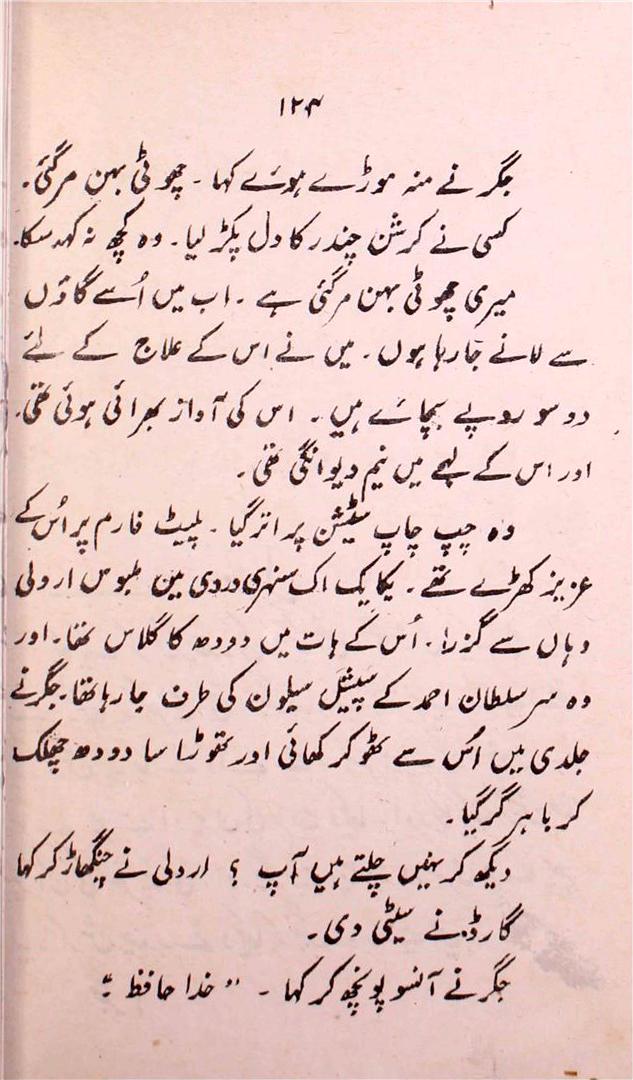 ۱۲۴
جگر نے منہ موڑے ہوئے کہا ۔ چھوٹی بہن مر گئی۔
کسی نے کرشن چندر کا دل پکڑ لیا۔ وہ کچھ نہ کہہ سکا۔
میری چھوٹی بہن مر گئی ہے ۔ اب میں اُسے گاؤں
سے لانے جا رہا ہوں۔ میں نے اس کے علاج کے لئے
دو سو روپے بچائے ہیں ۔ اس کی آواز بھرائی ہوئی تھی۔
اور اس کے لہجے میں نیم دیوانگی تھی ۔
وہ چپ چاپ سٹیشن پر اتر گیا ۔ پلیٹ فارم پر اُس کے
عزیز کھڑے تھے ۔ یکایک اک سنہری وردی میں ملبوس اردلی
وہاں سے گزرا ۔ اُس کے ہات میں دودھ کا گلاس تھا۔ اور
وہ سر سلطان احمد کے سپیشل سیلون کی طرف جا رہا تھا۔ جگر نے
جلدی میں اُس سے ٹھوکر کھائی اور تھوڑا سا دودھ چھلک
کر باہر گر گیا ۔
دیکھ کر نہیں چلتے ہیں آپ ؟ اردلی نے چنگھاڑ کر کہا
گارڈ نے سیٹی دی ۔
جگر نے آنسو پونچھ کر کہا ۔ " خدا حافظ ۔"